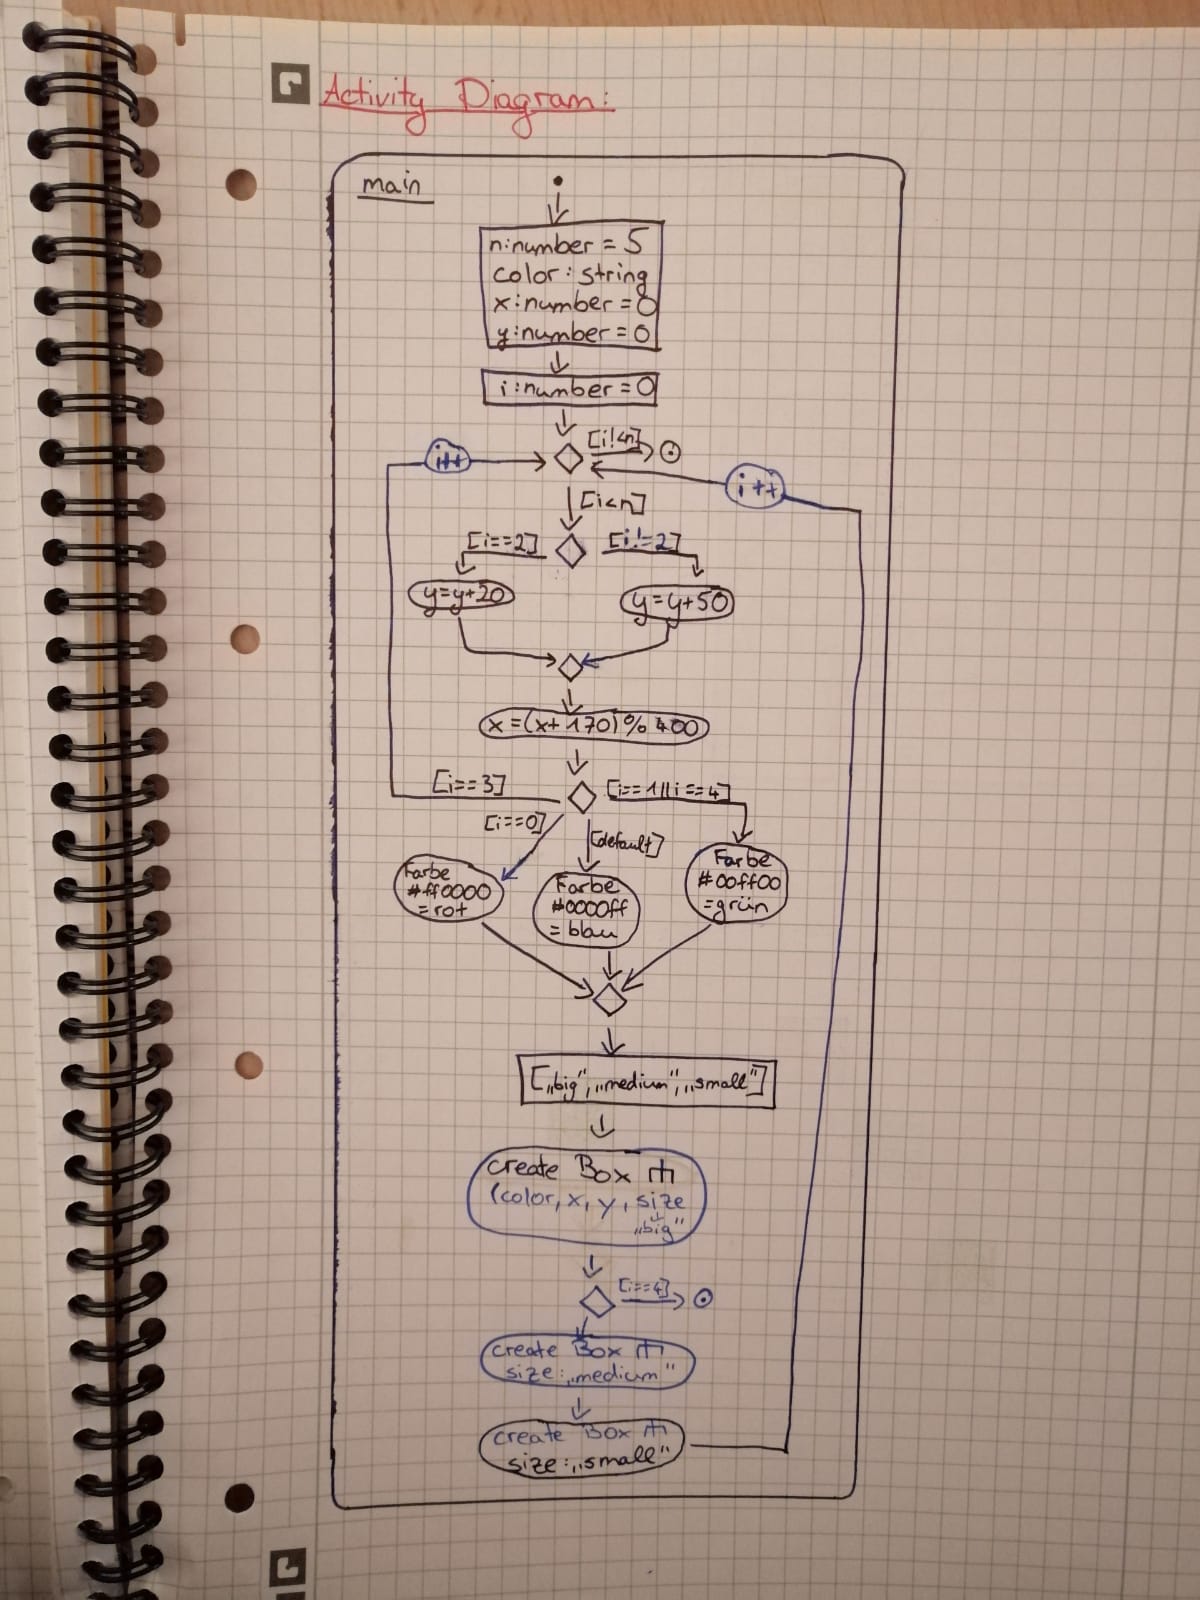 Activity Diagram:
main
n:number = 5
color: string
x:number = 0
y:number = 0
i:number = 0
[i!<n]
i++
i++
[i<n]
[i==2]
[i!=2]
y=y+20
y=y+50
x=(x+170)%400
[i==3]
[i==1||i==4]
[i==0]
[default]
Farbe
#ff0000
=rot
Farbe
#0000ff
=blau
Farbe
#00ff00
=grün
[„big",„medium",„small"]
create Box
(color, x, y, size
„big"
[i==4]
create Box
size:„medium"
create Box
size:„small"